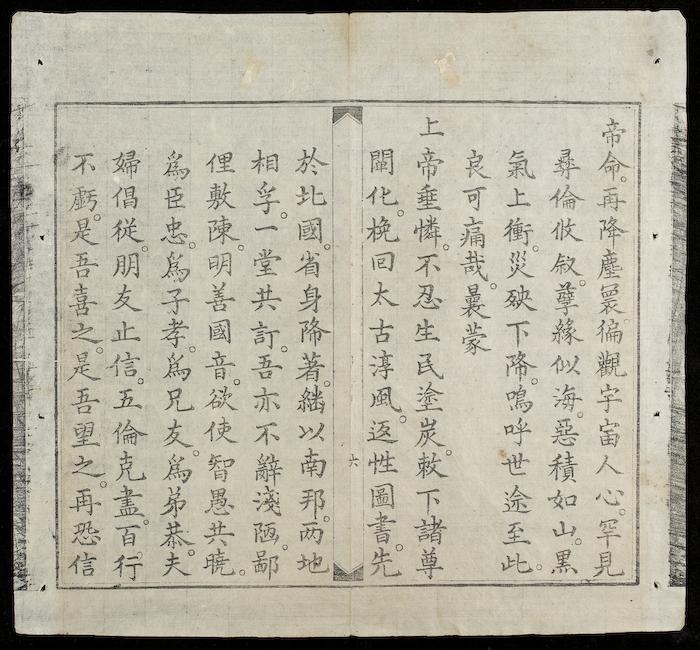 帝命。再降塵寰。徧觀宇宙人心。罕見
彛倫攸敘。孽緣似海。惡積如山。黑
氣上衝。災殃下降。嗚呼世途至此。
良可痛哉。曩蒙
上帝垂憐。不忍生民塗炭。敕下諸尊
闡化。挽回太古淳風。返性圖書。先
六
於北國。省身降著。繼以南邦。两地
相孚。一堂共訂。吾亦不辭淺陋。鄙
俚敷陳。明善國音。欲使智愚共曉。
爲臣忠。爲子孝。爲兄友。爲弟恭。夫
婦倡從。朋友止信。五倫克盡。百行
不虧。是吾喜之。是吾望之。再恐信